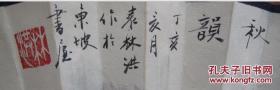 秋
韻
丁亥
亥月
袁林洪
作於
東坡
書屋
孔夫子旧书网